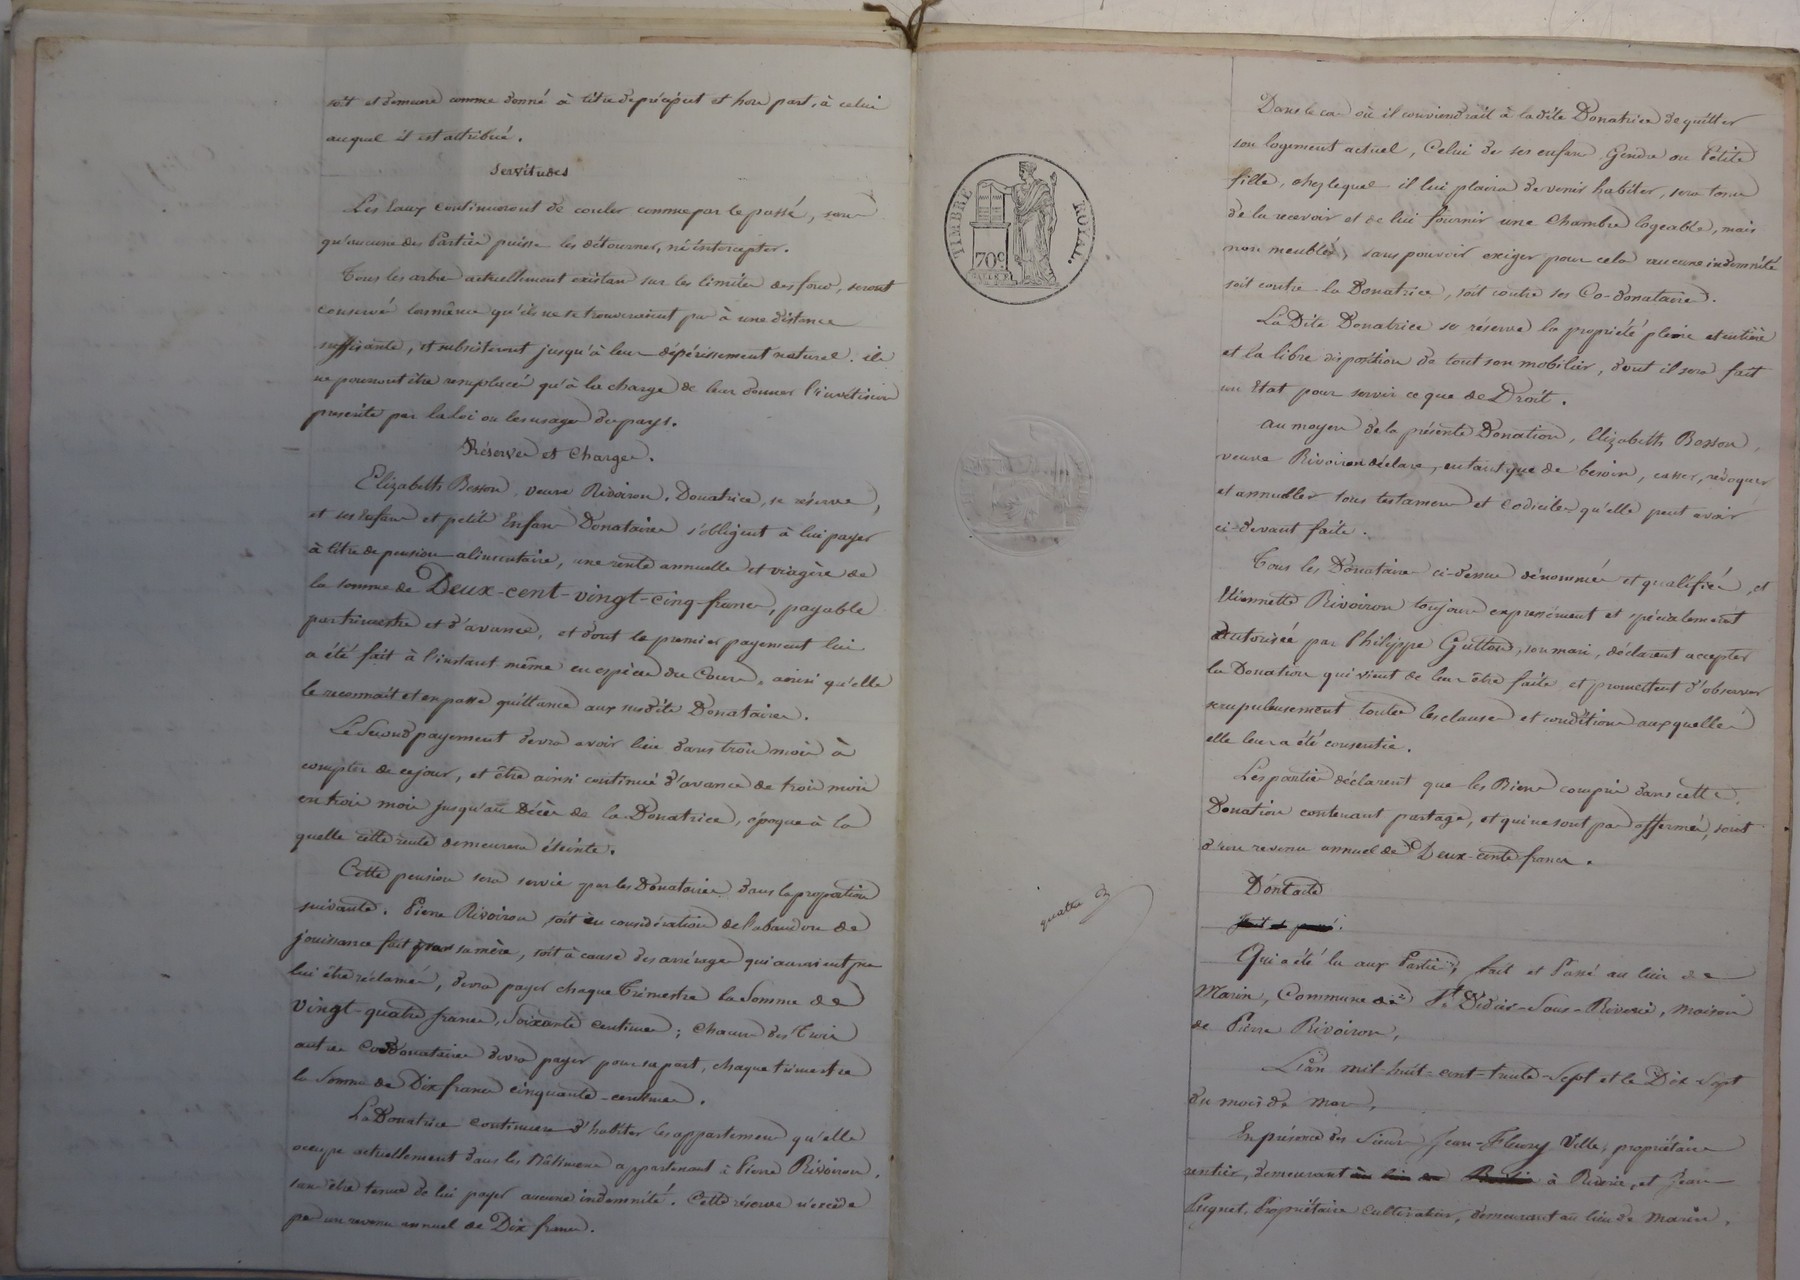 soit et demeure comme donné à titre de préciput et hors part, à celui
auquel il est attribué.
Servitudes
Les Eaux continueront de couler comme par le passé, sans
qu'aucune des Parties puisse les détourner, ni intercepter.
Tous les arbres actuellement existans sur les limites des fonds, seront
conservés lors même qu'ils ne se trouveraient pas à une distance
suffisante, et subsisteront jusqu'à leur dépérissement naturel : ils
ne pourront être remplacés qu'à la charge de leur donner l'invétison
prescrite par la loi ou les usages du pays.
Réserves et Charges.
Elizabeth Besson, veuve Rivoiron, Donatrice, se réserve,
et ses enfans et petits Enfans Donataires s'obligent à lui payer
à titre de pension alimentaire, une rente annuelle et viagère de
la somme de Deux-cent-vingt-cinq-francs, payable
par trimestre et d'avance, et dont le premier payement lui
a été fait à l'instant même en espèces du Cours, ainsi qu'elle
le reconnait et en passe quittance aux susdits Donataires.
Le Second payement devra avoir lieu dans trois mois à
compter de ce jour, et être ainsi continué d'avance de trois mois
en trois mois jusqu'au Décès de la Donatrice, époque à la
quelle cette rente demeurera éteinte.
Cette pension sera servie par les Donataires dans la proportion
suivante. Pierre Rivoiron soit en considération de l'abandon de
jouissance fait par sa mère, soit à cause des arrérages qui auraient pu
lui être réclamés, devra payer chaque Trimestre la Somme de
vingt-quatre francs, Soixante centimes ; chacun des Trois
autres Codonataires devra payer pour sa part, chaque trimestre
la Somme de Dix francs cinquante-centimes.
La Donatrice continuera d'habiter les appartemens qu'elle
occupe actuellement dans les Bâtimens appartenant à Pierre Rivoiron,
sans être tenue de lui payer aucune indemnité. Cette réserve n'excède
pas un revenu annuel de Dix francs.
TIMBRE ROYAL
70c
quatre
Dans le cas où il conviendrait à la dite Donatrice de quitter
son logement actuel, Celui de ses enfans, Gendre ou Petite
fille, chez lequel il lui plaira de venir habiter, sera tenu
de la recevoir et de lui fournir une Chambre logeable, mais
non meublée, sans pouvoir exiger pour cela aucune indemnité
soit contre la Donatrice, soit contre ses Co-donataires.
La Dite Donatrice se réserve la propriété pleine et entière
et la libre disposition de tout son mobilier, dont il sera fait
un Etat pour servir ce que de Droit.
Au moyen de la présente Donation, Elizabeth Besson,
veuve Rivoiron déclare, en tant que de besoin, casser, révoquer
et annuller tous testamens et Codiciles qu'elle peut avoir
ci-devant faits.
Tous les Donataires ci-dessus dénommés et qualifiés, et
Etiennette Rivoiron toujours expressément et spécialement
autorisée par Philippe Gutton, son mari, déclarent accepter
la Donation qui vient de leur être faite et promettent d'observer
scrupuleusement toutes les clauses et conditions auxquelles
elle leur a été consentie.
Les parties déclarent que les Biens compris dans cette
Donation contenant partage, et qui ne sont pas affermés, sont
d'un revenu annuel de Deux-cents francs.
Dont acte
Fait et passé.
Qui a été lu aux Parties, fait et Passé au lieu de
Marin, Commune de St Didier-Sous-Riverie, maison
de Pierre Rivoiron,
L'an mil-huit-cent-trente-Sept et le Dix Sept
du mois de Mars,
En présence des Sieurs Jean-Fleury Ville, propriétaire
rentier, demeurant au lieu de à Riverie, et Jean
Puguet, Propriétaire Cultivateur, demeurant au lieu de Marin,